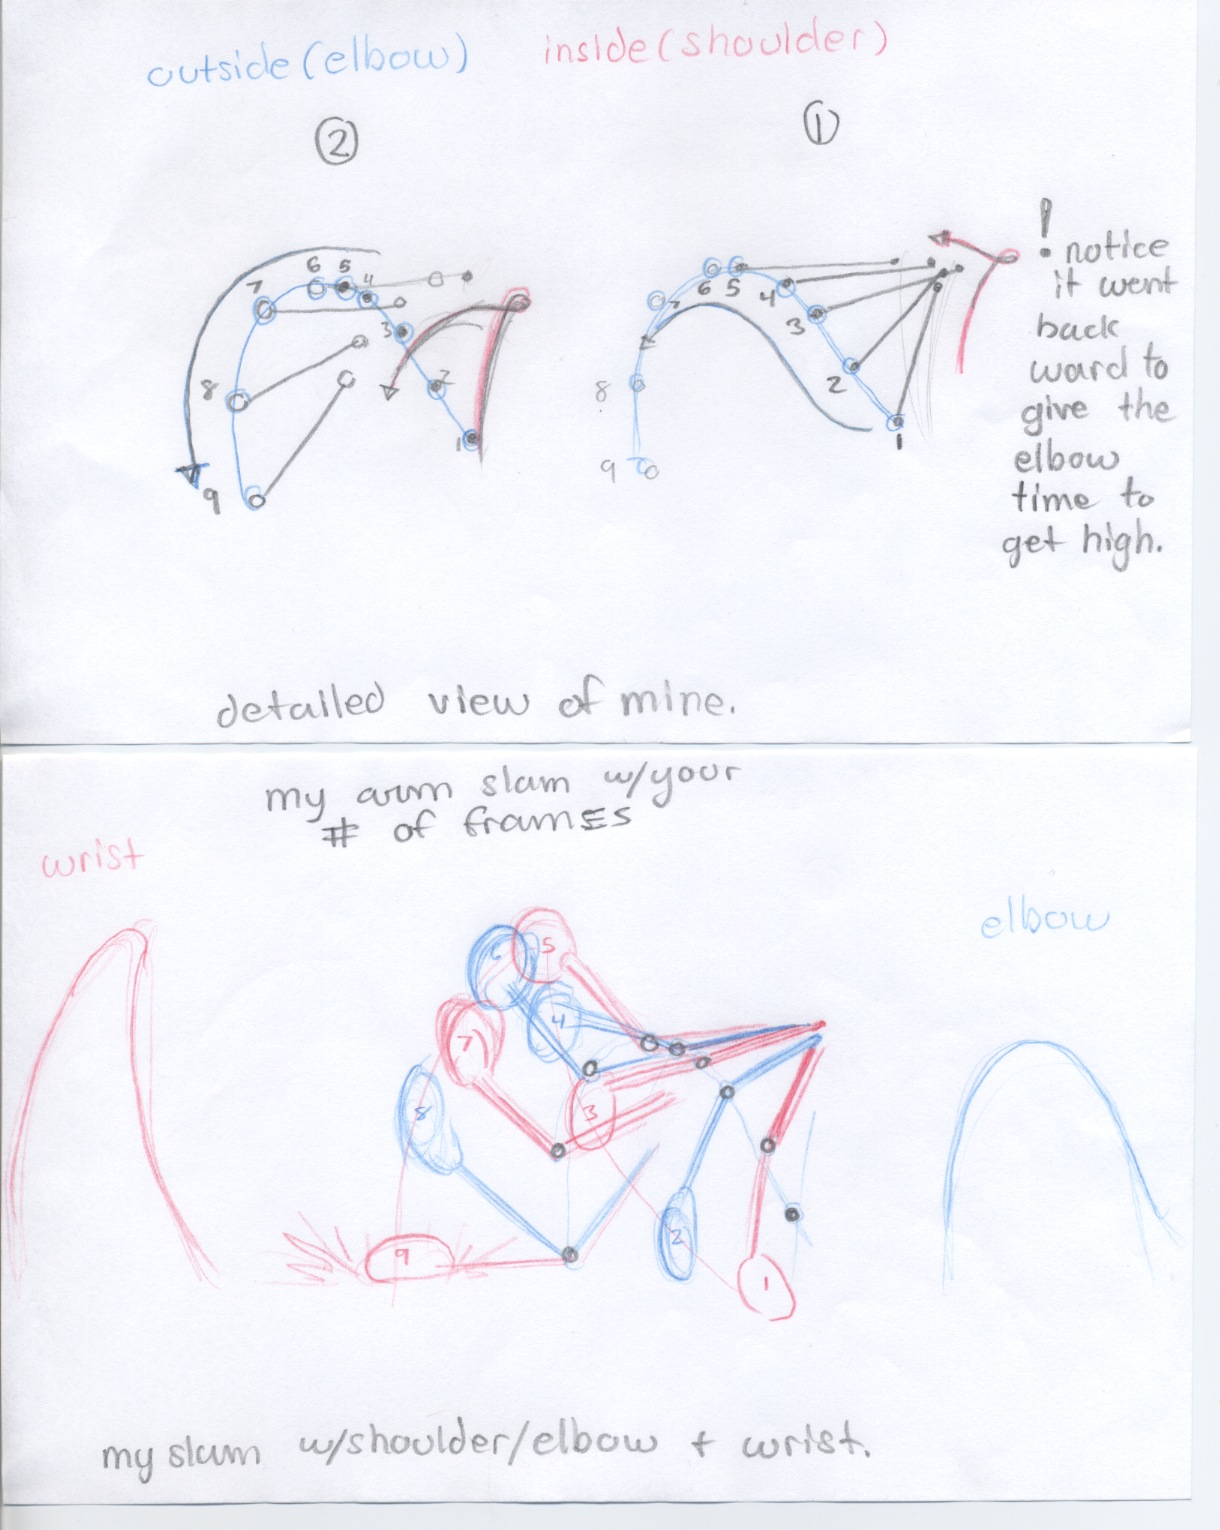 outside (elbow)
inside (shoulder)
2
1
6 5 4
7
3
2
8
1
9
6 5 4
7
3
2
8
1
9
! notice
it went
back
ward to
give the
elbow
time to
get high.
detailed view of mine.
my arm slam w/your
# of frames
wrist
elbow
5
4
7
3
8
2
9
1
my slam w/shoulder/elbow + wrist.